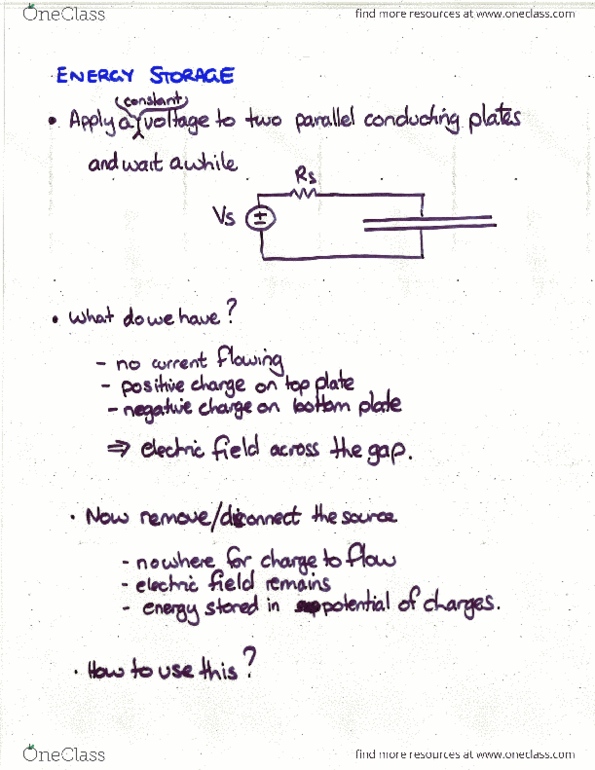 OneClass find more resources at www.oneclass.com
ENERGY STORAGE
(constant)
• Apply a voltage to two parallel conducting plates
and wait awhile
Rs
Vs
±
• What do we have?
- no current flowing
- positive charge on top plate
- negative charge on bottom plate
⇒ electric field across the gap.
• Now remove/disconnect the source
- nowhere for charge to flow
- electric field remains
- energy stored in potential of charges.
• How to use this?
OneClass find more resources at www.oneclass.com